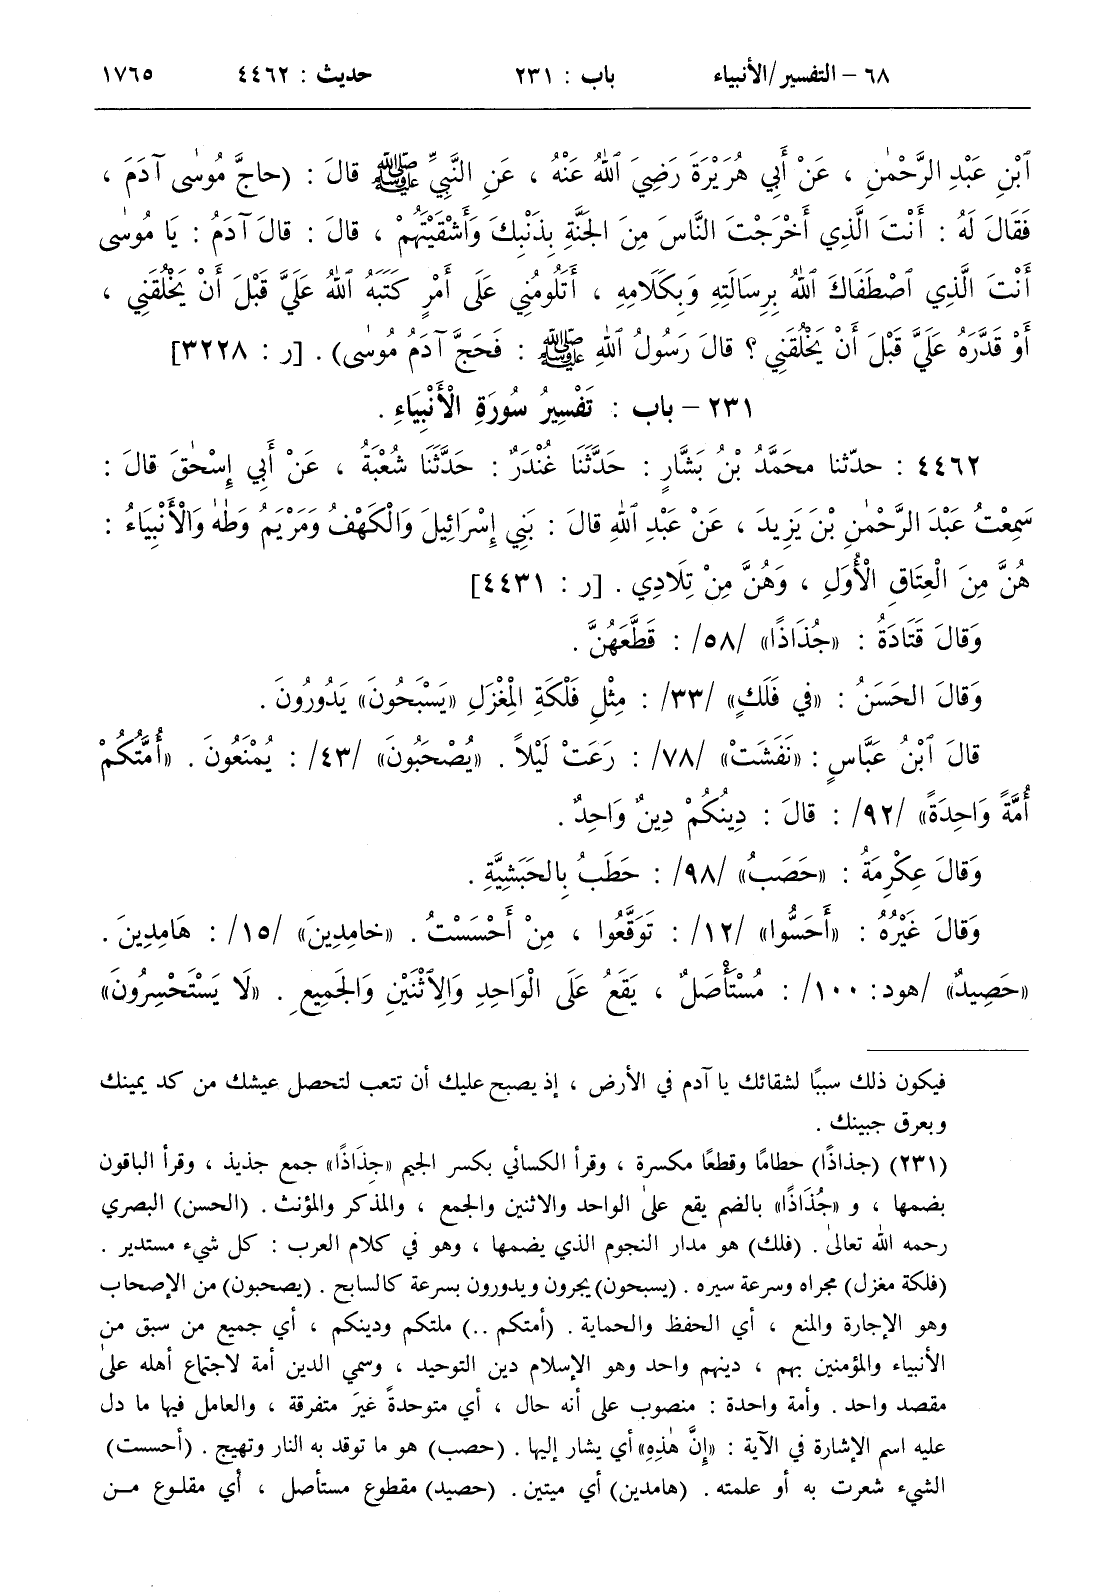 ٦٨ – التفسير/الأنبياء باب : ٢٣١ حديث : ٤٤٦٢ ١٧٦٥
ٱبْنِ عَبْدِ الرَّحْمٰنِ ، عَنْ أَبِي هُرَيْرَةَ رَضِيَ ٱللهُ عَنْهُ ، عَنِ النَّبِيِّ ﷺ قالَ : (حاجَّ مُوسٰى آدَمَ ،
فَقَالَ لَهُ : أَنْتَ الَّذِي أَخْرَجْتَ النَّاسَ مِنَ الجَنَّةِ بِذَنْبِكَ وَأَشْقَيْتَهُمْ ، قالَ : قالَ آدَمُ : يَا مُوسٰى
أَنْتَ الَّذِي ٱصْطَفَاكَ ٱللهُ بِرِسَالَتِهِ وَبِكَلَامِهِ ، أَتَلُومُنِي عَلَى أَمْرٍ كَتَبَهُ ٱللهُ عَلَيَّ قَبْلَ أَنْ يَخْلُقَنِي ،
أَوْ قَدَّرَهُ عَلَيَّ قَبْلَ أَنْ يَخْلُقَنِي ؟ قالَ رَسُولُ ٱللهِ ﷺ : فَحَجَّ آدَمُ مُوسٰى) . [ر : ٣٢٢٨]
٢٣١ – باب : تَفْسِيرُ سُورَةِ الْأَنْبِيَاءِ .
٤٤٦٢ : حدّثنا محَمَّدُ بْنُ بَشَّارٍ : حَدَّثَنَا غُنْدَرٌ : حَدَّثَنَا شُعْبَةُ ، عَنْ أَبِي إِسْحٰقَ قالَ :
سَمِعْتُ عَبْدَ الرَّحْمٰنِ بْنَ يَزِيدَ ، عَنْ عَبْدِ ٱللهِ قالَ : بَنِي إِسْرَائِيلَ وَالْكَهْفُ وَمَرْيَمُ وَطٰهٰ وَالْأَنْبِيَاءُ :
هُنَّ مِنَ الْعِتَاقِ الْأُوَلِ ، وَهُنَّ مِنْ تِلَادِي . [ر : ٤٤٣١]
وَقالَ قَتَادَةُ : «جُذَاذًا» /٥٨/ : قَطَّعَهُنَّ .
وَقالَ الحَسَنُ : «فِي فَلَكٍ» /٣٣/ : مِثْلِ فَلْكَةِ الْمِغْزَلِ «يَسْبَحُونَ» يَدُورُونَ .
قالَ ٱبْنُ عَبَّاسٍ : «نَفَشَتْ» /٧٨/ : رَعَتْ لَيْلاً . «يُصْحَبُونَ» /٤٣/ : يُمْنَعُونَ . «أُمَّتُكُمْ
أُمَّةً وَاحِدَةً» /٩٢/ : قالَ : دِينُكُمْ دِينٌ وَاحِدٌ .
وَقالَ عِكْرِمَةُ : «حَصَبُ» /٩٨/ : حَطَبُ بِالحَبَشِيَّةِ .
وَقالَ غَيْرُهُ : «أَحَسُّوا» /١٢/ : تَوَقَّعُوا ، مِنْ أَحْسَسْتُ . «خامِدِينَ» /١٥/ : هَامِدِينَ .
«حَصِيدٌ» /هود: ١٠٠/ : مُسْتَأْصَلٌ ، يَقَعُ عَلَى الْوَاحِدِ وَالِٱثْنَيْنِ وَالجَمِيعِ . «لَا يَسْتَحْسِرُونَ»
فيكون ذلك سببًا لشقائك يا آدم في الأرض ، إذ يصبح عليك أن تتعب لتحصل عيشك من كد يمينك
وبعرق جبينك .
(٢٣١) (جذاذًا) حطامًا وقطعًا مكسرة ، وقرأ الكسائي بكسر الجيم «جِذَاذًا» جمع جذيذ ، وقرأ الباقون
بضمها ، و «جُذَاذًا» بالضم يقع علىٰ الواحد والاثنين والجمع ، والمذكر والمؤنث . (الحسن) البصري
رحمه الله تعالىٰ . (فلك) هو مدار النجوم الذي يضمها ، وهو في كلام العرب : كل شيء مستدير .
(فلكة مغزل) مجراه وسرعة سيره . (يسبحون) يجرون ويدورون بسرعة كالسابح . (يصحبون) من الإصحاب
وهو الإجارة والمنع ، أي الحفظ والحماية . (أمتكم ..) ملتكم ودينكم ، أي جميع من سبق من
الأنبياء والمؤمنين بهم ، دينهم واحد وهو الإسلام دين التوحيد ، وسمي الدين أمة لاجتماع أهله علىٰ
مقصد واحد . وأمة واحدة : منصوب على أنه حال ، أي متوحدةً غيرَ متفرقة ، والعامل فيها ما دل
عليه اسم الإشارة في الآية : «إِنَّ هٰذِهِ» أي يشار إليها . (حصب) هو ما توقد به النار وتهيج . (أحسست)
الشيء شعرت به أو علمته . (هامدين) أي ميتين . (حصيد) مقطوع مستأصل ، أي مقلوع من